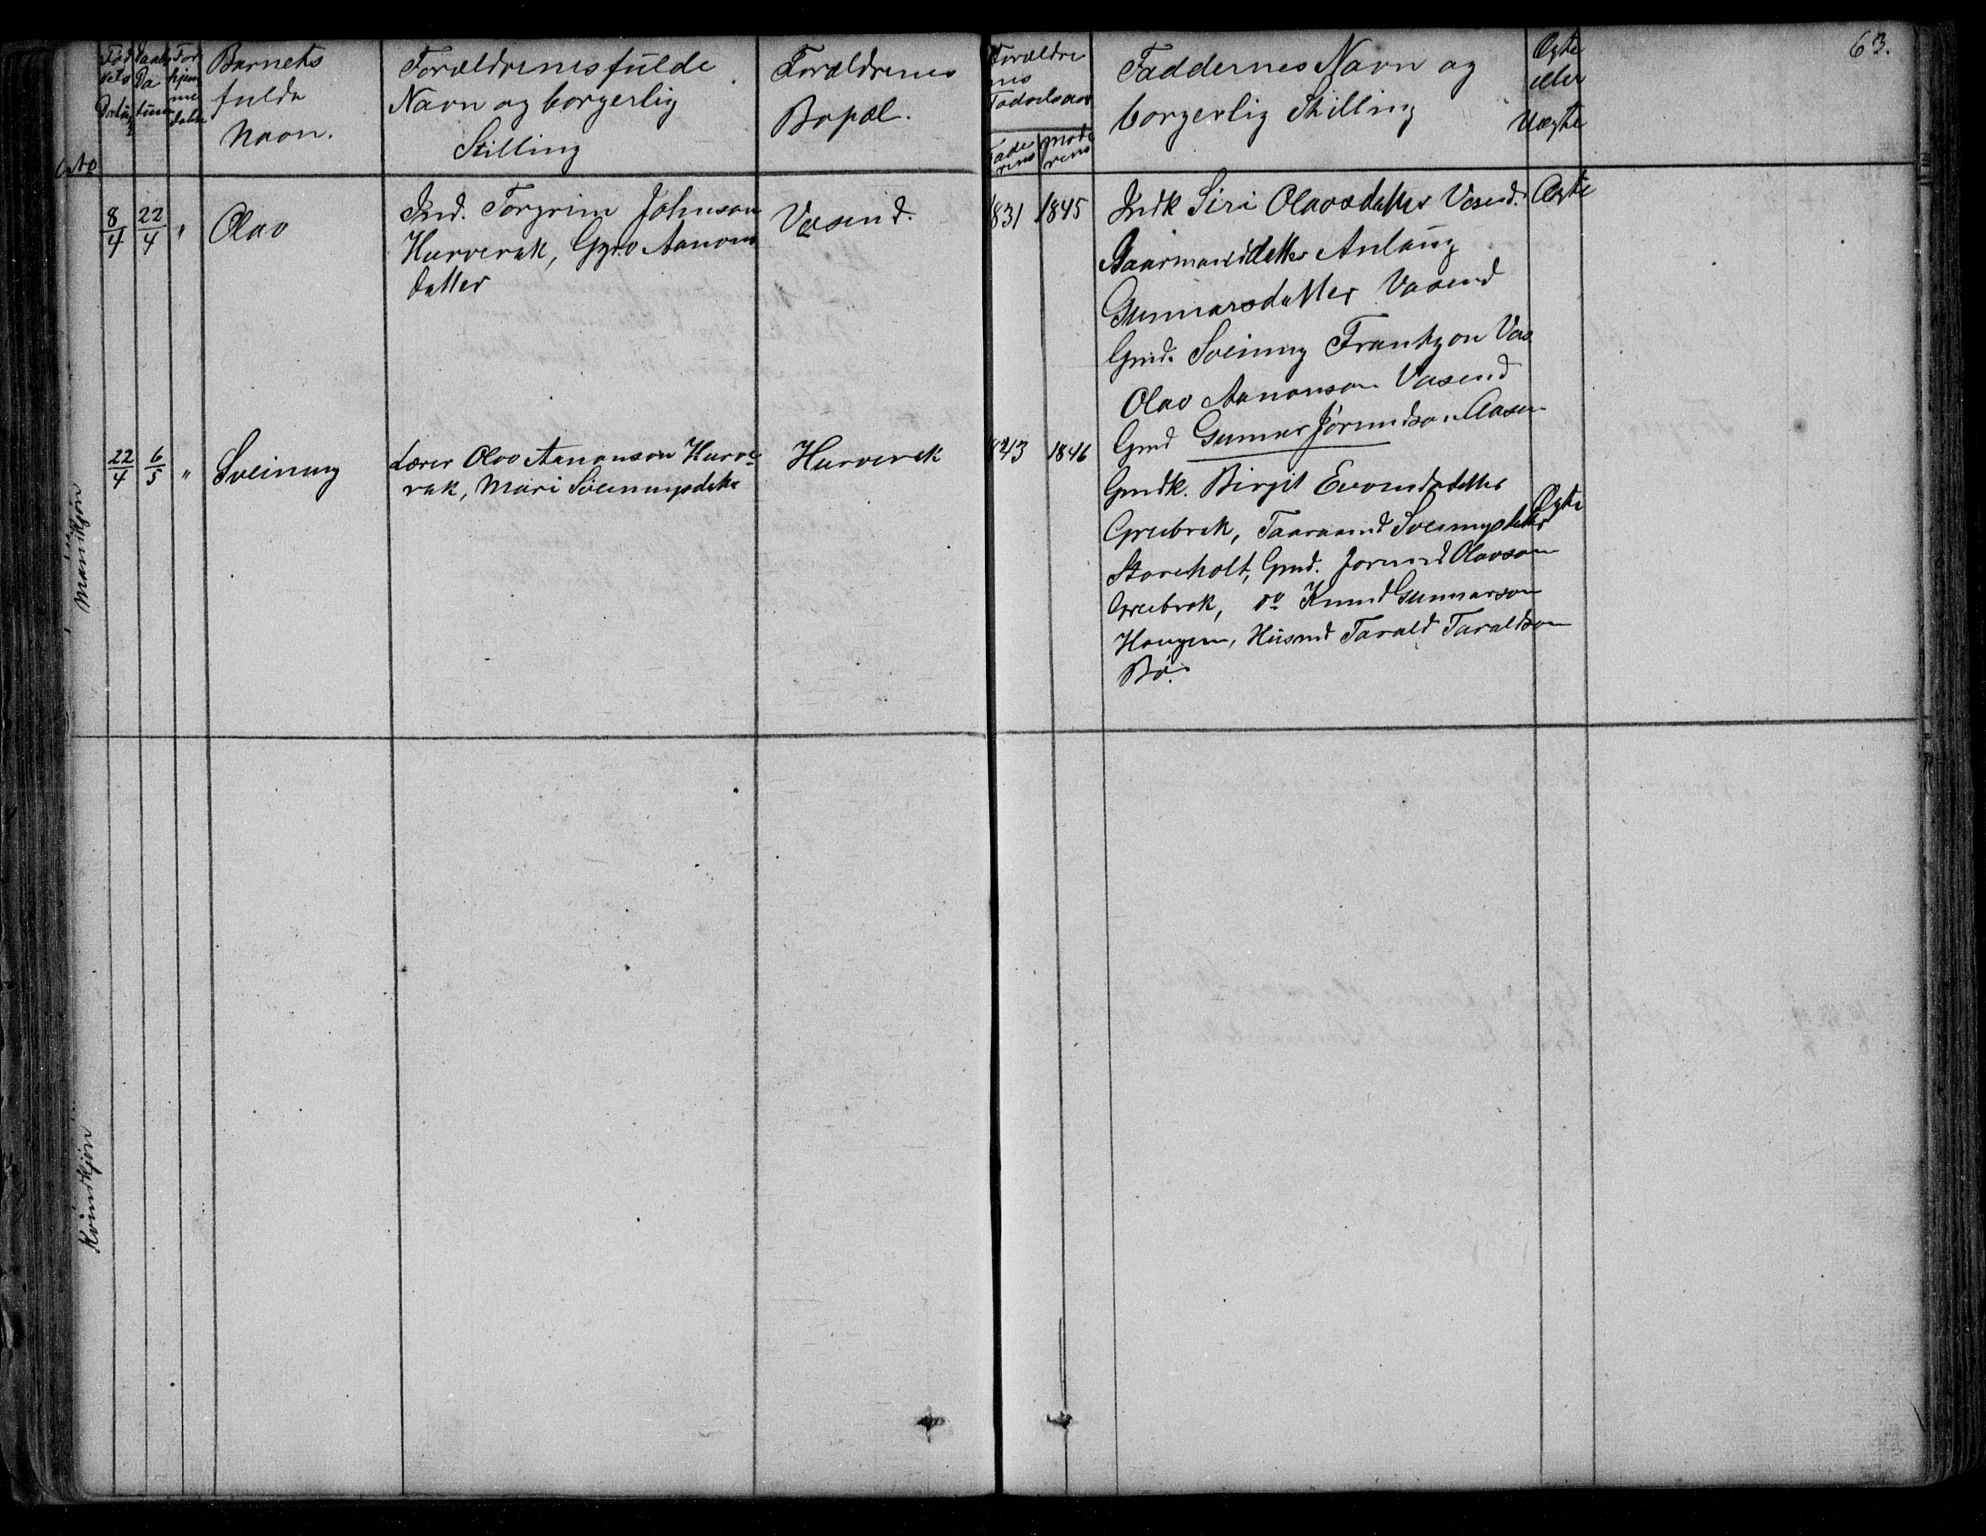 63.
Barnets
fulde
Navn.
Forældrenes fulde
Navn og borgerlig
Stilling
Forældrenes
Bopæl.
Forældre
nes
Fødselsaar
Fade
rens
Mode
rens
Faddernes Navn og
borgerlig Stilling
Ægte
eller
Uægte
Mandkjøn
8/4 22/4 " Olav
Ind. Torgrim Johnson
Hurverak, Gyro Aanons
datter
Vasend.
1831 1845
Indk Siri Olavsdatter Vasend.
Gunnarsdatter Vasend
Gmd. Sveinung
Olav Aanonson Vasend
Gmd Gunnar Jørundson Aasen
Ægte
22/4 6/5 " Sveinung
Lærer Olav Aanonson Hurve
rak, Mari Sveinungsdatter
Hurverak
1843 1846
Gmdk. Birgit Evendsdatter
Greibrok, Taaraand Sveinungsdatter
Storeholt, Gmd. Jørund Olavson
Greibrok, do Knud Gunnarson
Haugen, Husmd Tarald Taraldson
Bø.
Ægte
Kvindkjøn